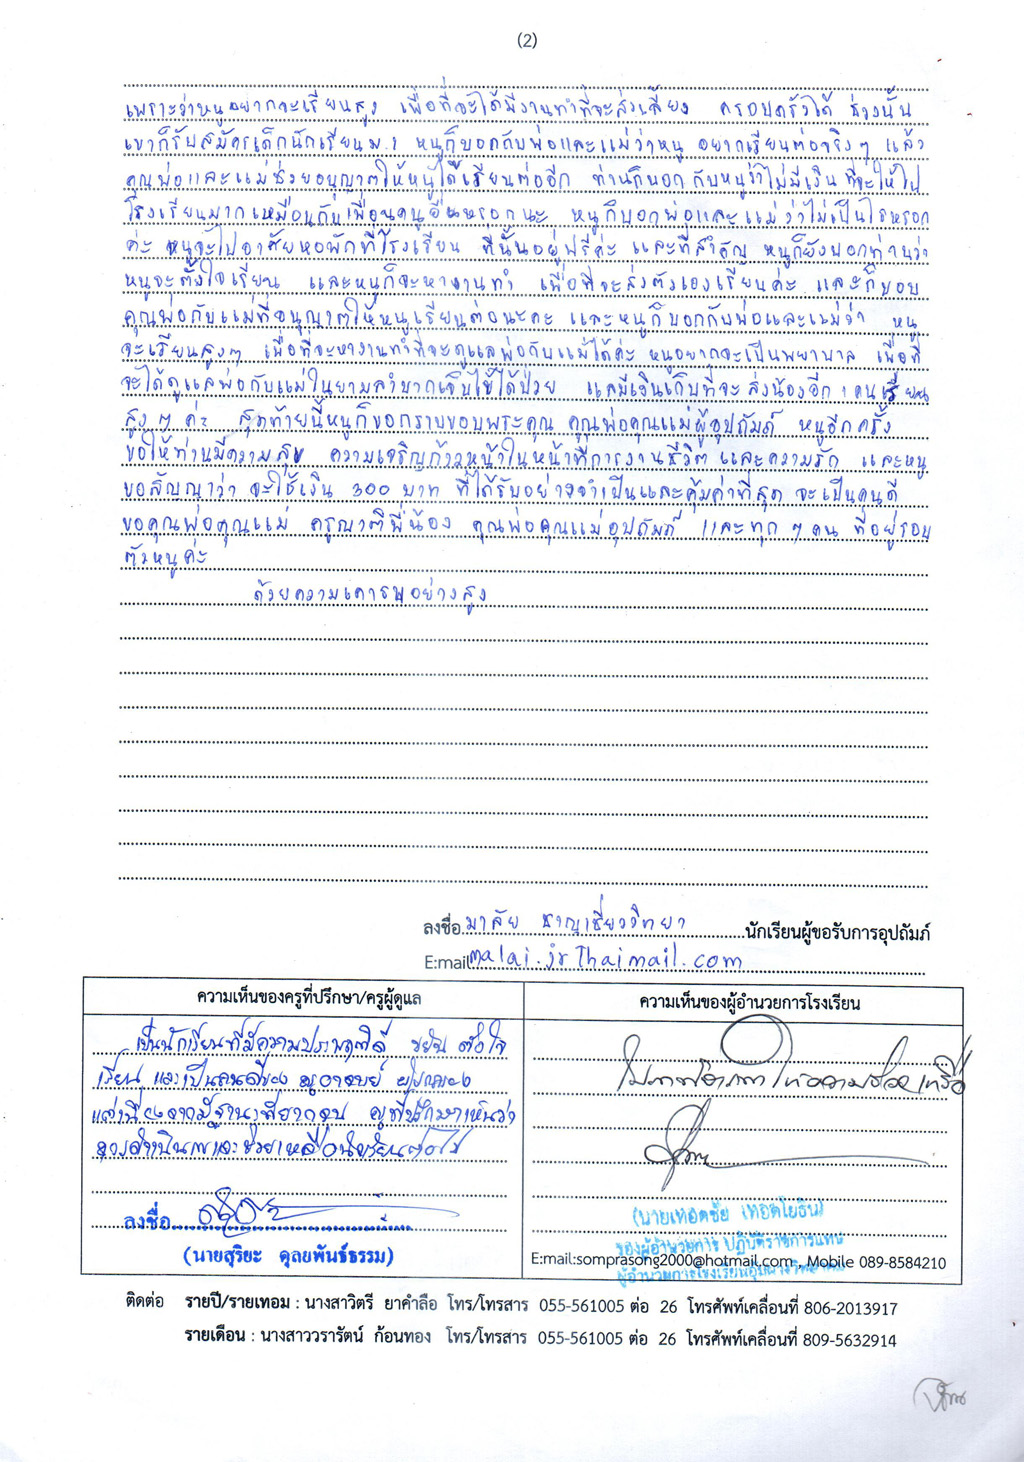 (2)
เพราะว่าหนูอยากจะเรียนสูง เพื่อที่จะได้มีงานทำที่จะส่งเลี้ยง ครอบครัวได้ ช่วงนั้น
เขาก็รับสมัครเด็กนักเรียนม.1 หนูก็บอกกับพ่อและแม่ว่าหนู อยากเรียนต่อจริงๆ แล้ว
คุณพ่อและแม่ซึ่งยอนุญาตให้หนูได้เรียนต่ออีก ท่านก็บอกกับหนูว่าไม่มีเงิน ที่จะให้ไป
โรงเรียนมากเหมือนกับเพื่อนคนอื่นหรอกนะ หนูก็บอกพ่อและแม่ว่าไม่เป็นไรหรอก
ค่ะ หนูจะไปอาศัยหอพักที่โรงเรียน ที่นั้นอยู่ฟรีค่ะ และที่สำคัญ หนูก็ยังบอกท่านว่า
หนูจะตั้งใจเรียน และหนูก็จะหางานทำ เพื่อที่จะส่งตัวเองเรียนค่ะ และก็ขอบ
คุณพ่อกับแม่ที่อนุญาตให้หนูเรียนต่อนะคะ และหนูก็บอกกับพ่อและแม่ว่า หนู
จะเรียนสูงๆ เพื่อที่จะหางานทำที่จะดูแลพ่อกับแม่ได้ค่ะ หนูอยากจะเป็นพยาบาล เพื่อที่
จะได้ดูแลพ่อกับแม่ในยามลำบากเจ็บไข้ได้ป่วย และมีเงินเก็บที่จะ ส่งน้องอีก 1 คนเรียน
สูงๆ ค่ะ สุดท้ายนี้หนูก็ขอกราบขอบพระคุณ คุณพ่อคุณแม่ผู้อุปถัมภ์ หนูอีกครั้ง
ขอให้ท่านมีความสุข ความเจริญก้าวหน้าในหน้าที่การงานชีวิต และความรัก และหนู
ขอสัญญาว่า จะใช้เงิน 300 บาท ที่ได้รับอย่างจำเป็นและคุ้มค่าที่สุด จะเป็นคนดี
ของคุณพ่อคุณแม่ ครูญาติพี่น้อง คุณพ่อคุณแม่อุปถัมภ์ และทุก ๆ คน ที่อยู่รอบ
ตัวหนูค่ะ
ด้วยความเคารพอย่างสูง
ลงชื่อ มาลัย ชาญเชี่ยววิทยา นักเรียนผู้ขอรับการอุปถัมภ์
E:mail malai.jrThaimail.com
ความเห็นของครูที่ปรึกษา/ครูผู้ดูแล
เป็นนักเรียนที่มีความประพฤติดี ขยัน ตั้งใจ
เรียน และเป็นคนดีของ ครูอาจารย์
ลงชื่อ
(นายสุริยะ ดุลยพันธ์ธรรม)
ความเห็นของผู้อำนวยการโรงเรียน
(นายเทอดชัย เทอดโยธิน)
รองผู้อำนวยการ ปฏิบัติราชการแทน
E:mail:somprasong2000@hotmail.com , Mobile 089-8584210
ติดต่อ รายปี/รายเทอม : นางสาวิตรี ยาคำลือ โทร/โทรสาร 055-561005 ต่อ 26 โทรศัพท์เคลื่อนที่ 806-2013917
รายเดือน : นางสาววรารัตน์ ก้อนทอง โทร/โทรสาร 055-561005 ต่อ 26 โทรศัพท์เคลื่อนที่ 809-5632914